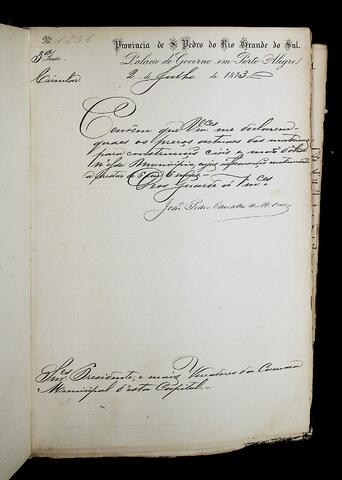 Nº 1258
Provincia de S. Pedro do Rio Grande do Sul.
3ª Secção.
Palacio do Governo em Porto Alegre,
Circular
2 de Julho de 1873.
Convém que Vmces me declarem
quaes os preços actuaes dos
para construcção e mão d'obra
Municipio, cujas informações
Deos Guarde a Vmces
João Pedro Carvalho de Moraes
Snres Presidente, e mais Vereadores da Camara
Municipal d'esta Capital.